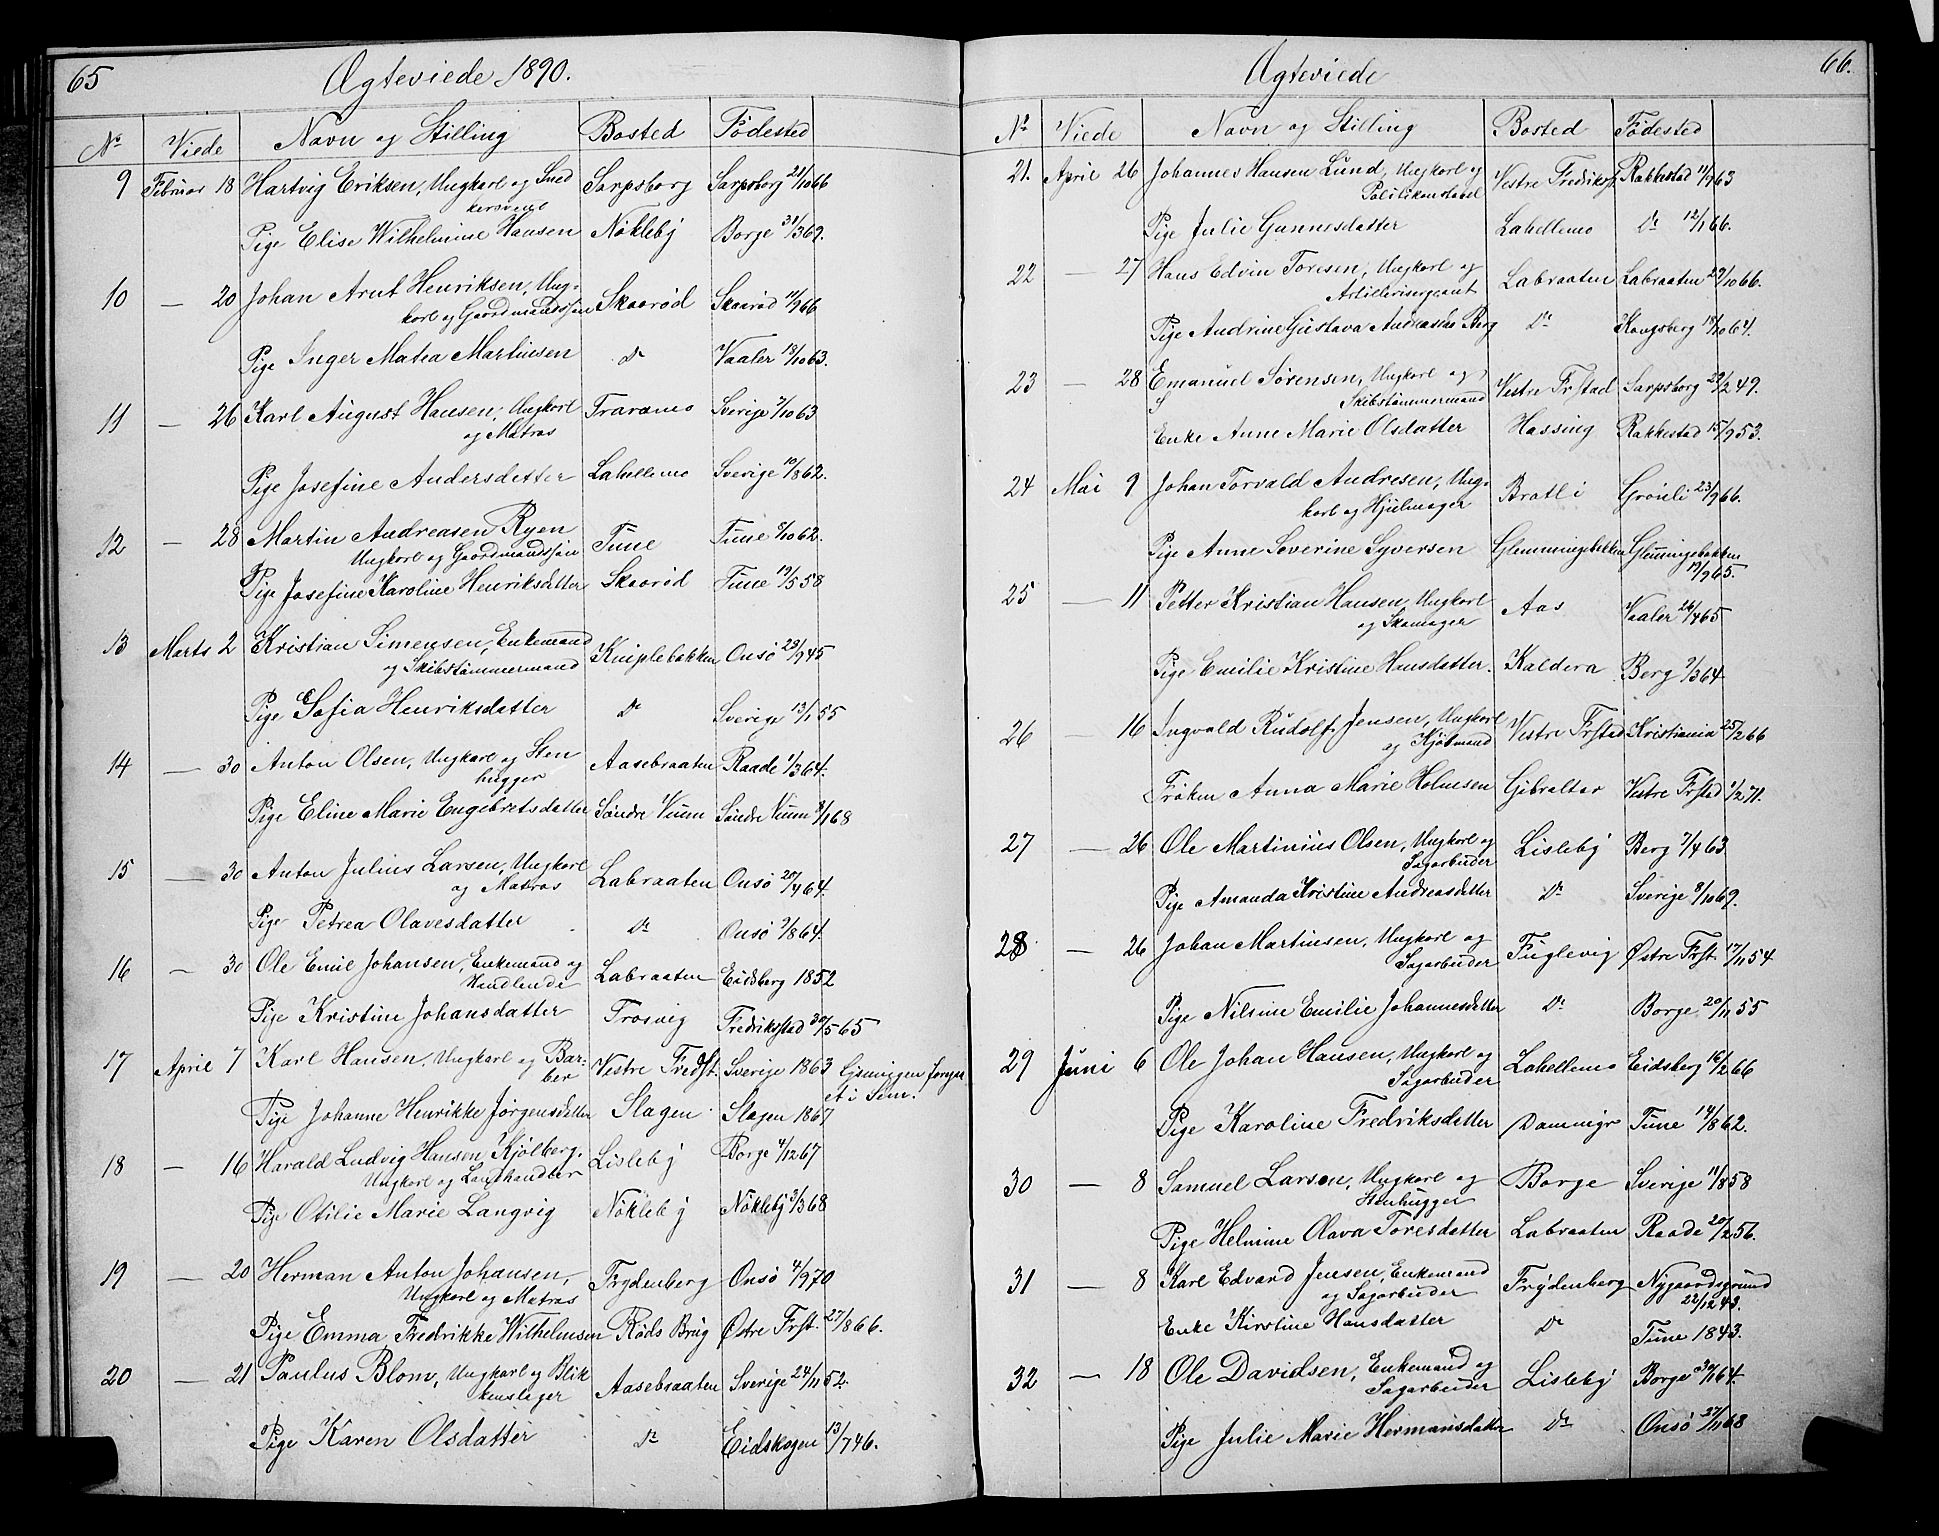 65 Ægteviede 1890.
No Viede Navn og Stilling Bosted Fødested
9 Februar 18 Hartvig Eriksen, Ungkarl og Sned Sarpsborg Sarpsborg 21/10 66
kersvend
Pige Elise Wilhelmine Hansen Nökleby Borge 31/3 69.
10 — 20 Johan Arnt Henriksen, Ung- Skaaröd Skaaröd 11/9 66
karl og Gaardmandssön
Pige Inger Matea Martinsen do Vaaler 18/10 63.
11 — 26 Karl August Hansen, Ungkarl Traramo Sverige 7/10 63
og Matros
Pige Josefine Andersdatter Lahellemo Sverige 10/8 62.
12 — 28 Martin Andreasen Ryen Tune Tune 5/10 62.
Ungkarl og Gaardmandssön
Pige Josefine Karoline Henriksdatter Skaaröd Tune 19/5 58
13 Marts 2 Kristian Simensen, Enkemand Kniplebakken Onsö 23/9 45
og Skibstömmermand
Pige Sofia Henriksdatter do Sverige 13/1 55
14 — 30 Anton Olsen, Ungkarl og Sten Aasebraaten Raade 1/3 64.
hugger
Pige Eline Marie Engebretsdatter Söndre Vium Söndre Vium 8/1 68
15 — 30 Anton Julius Larsen, Ungkarl Labraaten Onsö 20/4 64.
og Matros
Pige Petrea Olavesdatter do Onsö 9/8 64.
16 — 30 Ole Emil Johansen, Enkemand og Labraaten Eidsberg 1852
Handlende
Pige Kristine Johansdatter Trosvig Fredrikstad 30/5 65
17 April 7 Karl Hansen, Ungkarl og Bar- Vestre Fredst. Sverige 1863 Lysningen foreg
ber et i Sem.
Pige Johanne Henrikke Jörgensdatter Slagen Slagen 1867
18 — 16 Harald Ludvig Hansen Kjölberg. Lisleby Borge 4/12 67
Ungkarl og Landhandler
Pige Otilie Marie Langvig Nökleby Nökleby 3/3 68
19 — 20 Herman Anton Johansen, Frydenberg Onsö 4/9 70
Ungkarl og Matros
Pige Emma Fredrikke Wilhelmsen Röds Brug Østre Frst. 27/8 66.
20 — 21 Paulus Blom, Ungkarl og Blik Aasebraaten Sverige 24/11 52.
kenslager
Pige Karen Olsdatter do Eidskogen 13/7 46.
Ægteviede 66.
No Viede Navn og Stilling Bosted Fødested
21. April 26 Johannes Hansen Lund, Ungkarl og Vestre Fredrikst. Rakkestad 11/7 63
Politikonstabel
Pige Julie Gunnesdatter Lahellemo do 12/1 66.
22 — 27 Hans Edvin Toresen, Ungkarl og Labraaten Labraaten 29/10 66.
Artillerisergeant
Pige Andrine Gustava Andreasdtr Berg do Kongsberg 18/10 64.
23 — 28 Emanuel Sörensen, Ungkarl og Vestre Frstad Sarpsborg 22/2 49.
Skibstömmermand
Enke Anne Marie Olsdatter Hassing Rakkestad 15/9 53.
24 Mai 9 Johan Torvald Andresen, Ung- Bratli Grönli 23/9 66.
karl og Hjulmager
Pige Anne Severine Syversen Glemmingebakken Glemmingebakken
19/9 65.
25 — 11 Petter Kristian Hansen, Ungkarl Aas Vaaler 26/4 65
og Skomager
Pige Emilie Kristine Hansdatter. Kaldera Berg 9/3 64
26 — 16 Ingvald Rudolf Jensen, Ungkarl Vestre Frstad Kristiania 25/2 66
og Kjöbmand
Fröken Anna Marie Holmsen Gibraltar Vestre Frstad 1/2 71.
27 — 26 Ole Martinius Olsen, Ungkarl og Lisleby Berg 7/4 63
Sagarbeider
Pige Amanda Kristine Andreasdatter do Sverige 8/10 69.
28 — 26 Johan Martinsen, Ungkarl og Fuglevig Østre Frst. 17/11 54
Sagarbeider
Pige Nilsine Emilie Johannesdatter do Borge 20/11 55
29 Juni 6 Ole Johan Hansen, Ungkarl og Lahellemo Eidsberg 16/2 66
Sagarbeider
Pige Karoline Fredriksdatter Dammyr Tune 14/8 62.
30 — 8 Samuel Larsen, Ungkarl og Borge Sverige 11/8 58
Stenhugger
Pige Helmine Olava Toresdatter Labraaten Raade 20/2 56.
31 — 8 Karl Edvard Jensen, Enkemand Frydenberg Nygaardsgrund
og Sagarbeider 22/12 43.
Enke Kirstine Hansdatter do Tune 1843.
32 — 18 Ole Davidsen, Enkemand og Lisleby Borge 30/1 64.
Sagarbeider
Pige Julie Marie Hermansdatter do Onsö 27/11 68